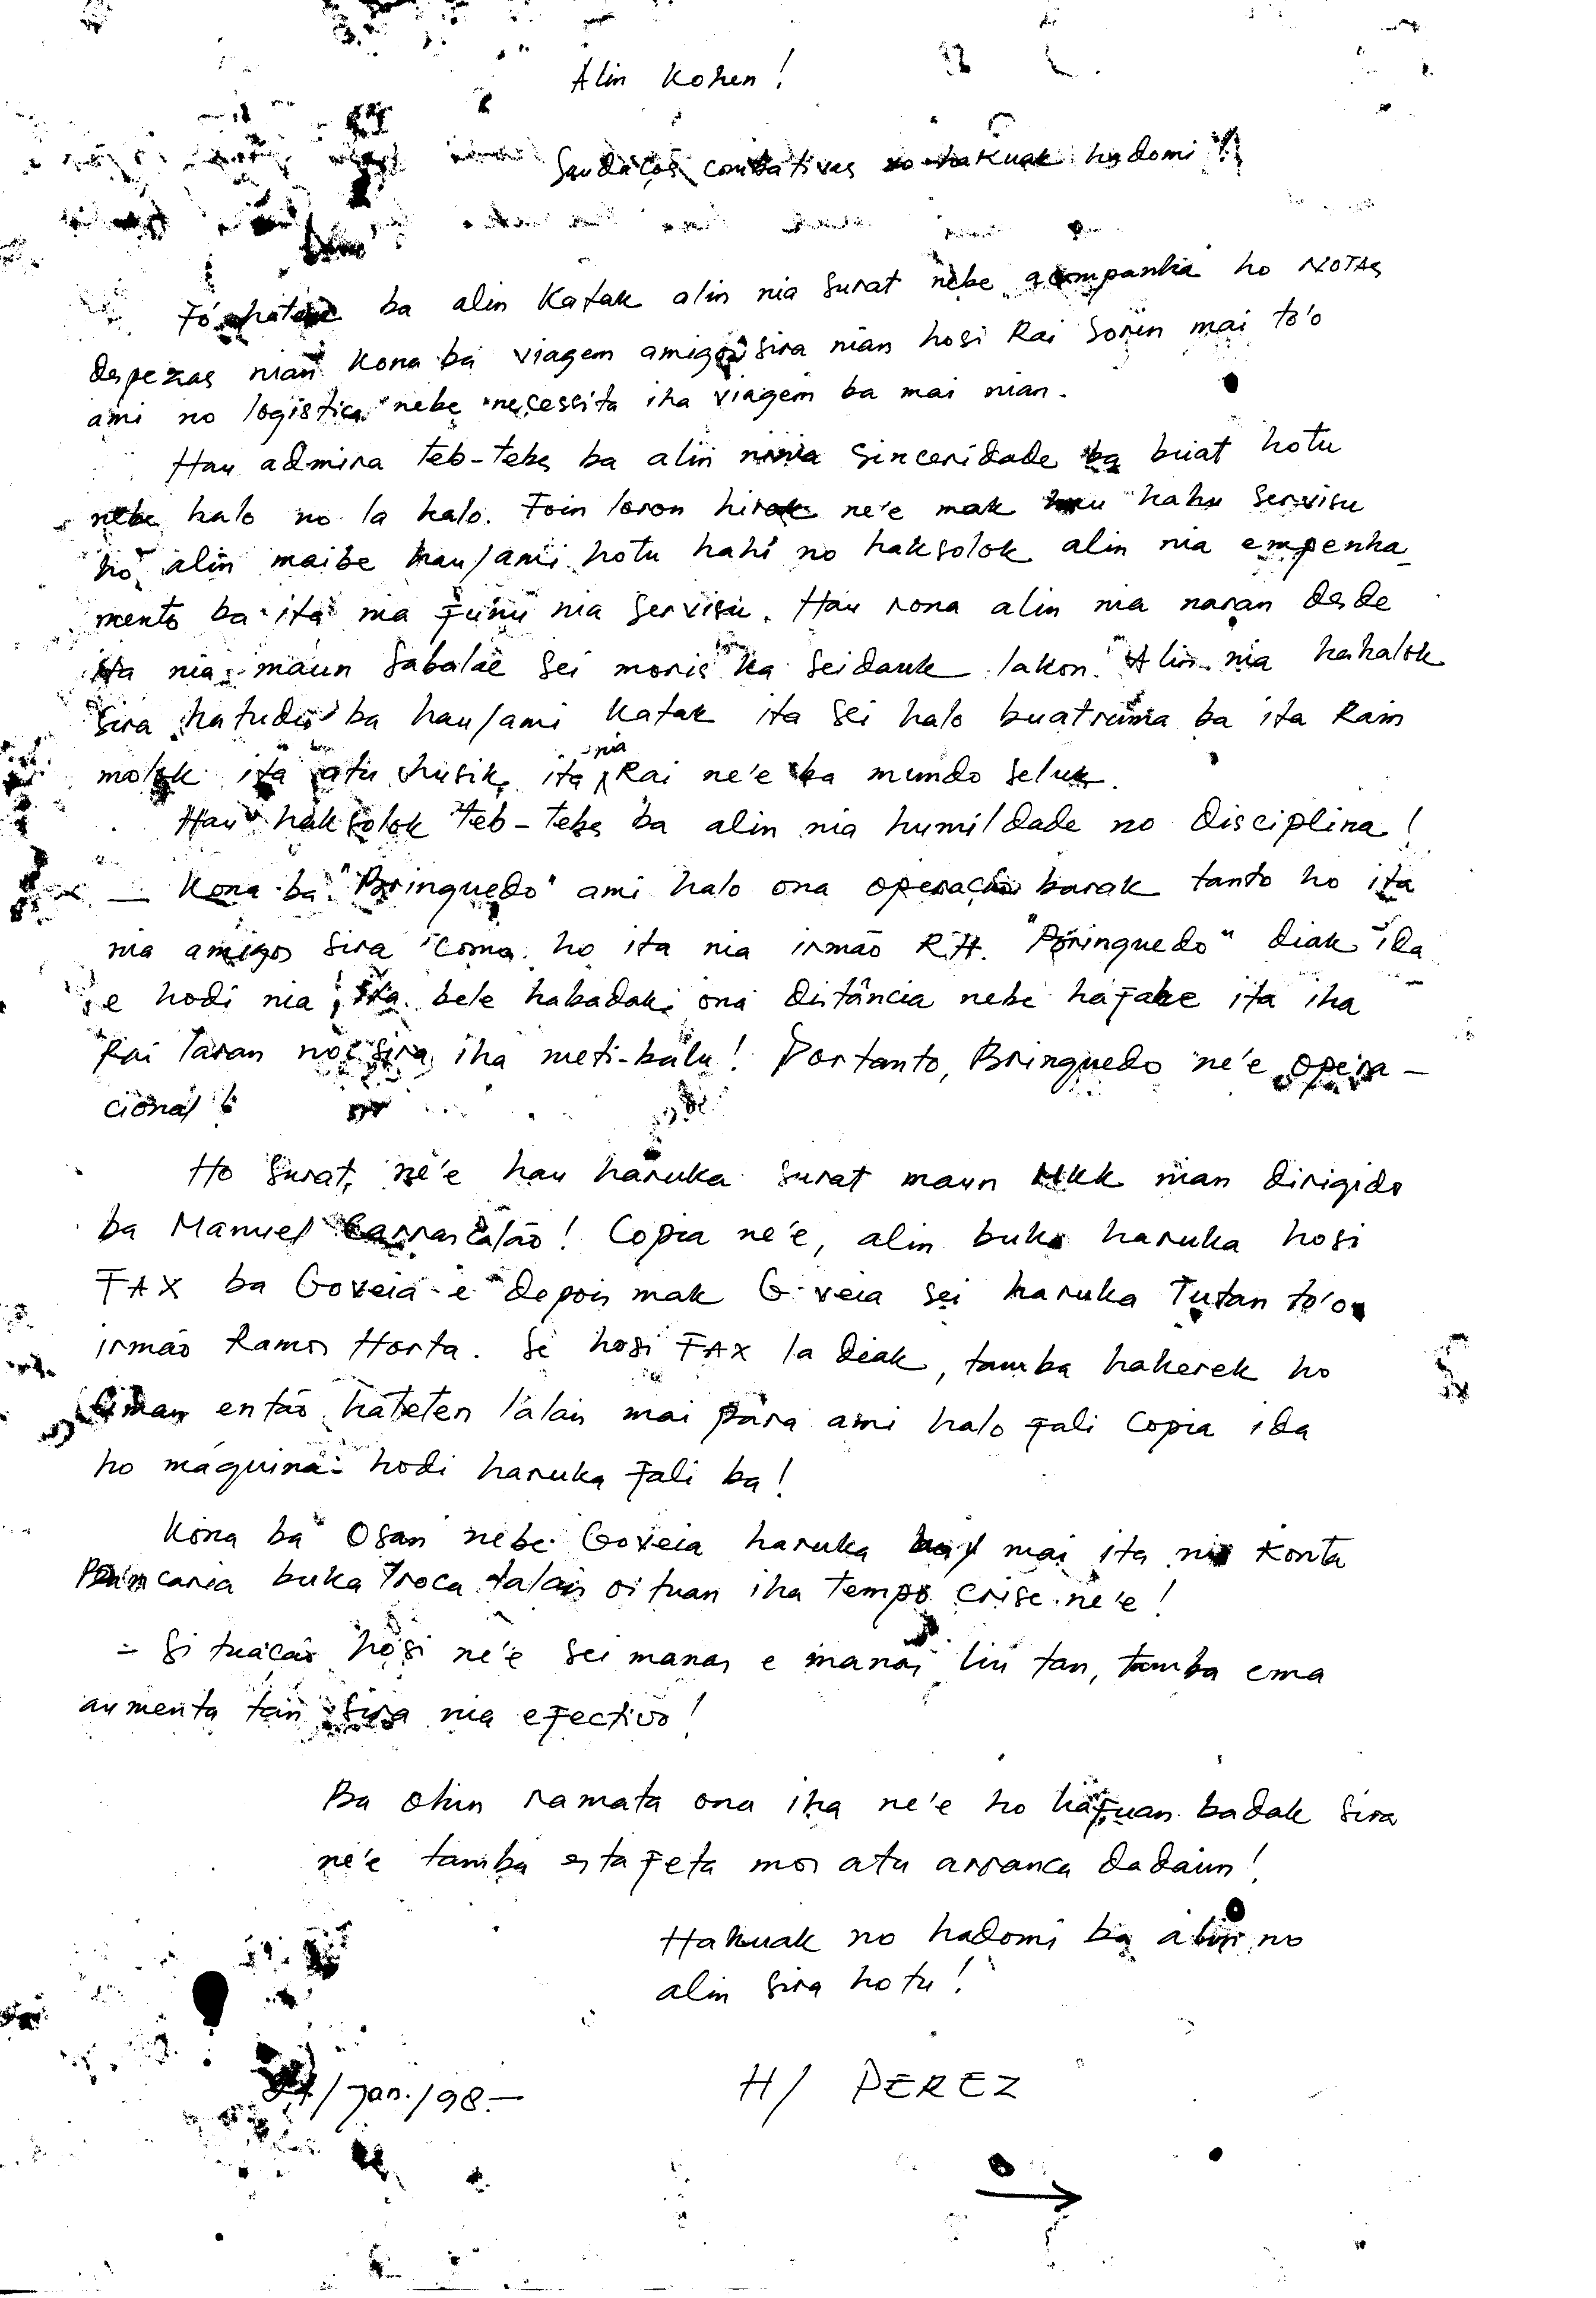 Alin Kohen!
Saudaçós combativas no hakuak hadomi!
Fó hatene ba alin Katak alin nia surat nebe acompanha ho NOTAs
despezas nian Kona ba viagem amigos sira nian hosi Rai Sorin mai to'o
ami no logistica nebe necessita iha viagem ba mai nian.
Hau admira teb-tebs ba alin ninia sinceridade ba buat hotu
nebe halo no la halo. Foin loron hirak ne'e mak hau hahu servisu
ho alin maibe hau/ami hotu hahi no haksolok alin nia empenha-
mento ba ita nia funu nia servisu. Hau rona alin nia naran desde
ita nia maun Sabalae sei moris ka seidauk lakon. Alin nia hahalok
sira hatudu ba hau/ami Katak ita sei halo buatruma ba ita Rain
molok ita atu husik ita nia Rai ne'e ba mundo seluk.
Hau haksolok teb-tebs ba alin nia humildade no disciplina!
— Kona ba "Brinquedo" ami halo ona operacão barak tanto ho ita
nia amigos sira como ho ita nia irmão R.H. "Brinquedo" diak ida
e hodi nia ita bele habadak ona distância nebe hafahe ita iha
Rai Laran no sira iha meti-balu! Portanto, Brinquedo ne'e opera-
cional!
Ho surat ne'e hau haruka surat maun HKK nian dirigido
ba Manuel Carrascalão! Copia ne'e, alin buka haruka hosi
FAX ba Goveia e depois mak Goveia sei haruka Tutan to'o
irmão Ramos Horta. Se hosi FAX la diak, tamba hakerek ho
liman então hateten lalais mai para ami halo fali copia ida
ho máquina hodi haruka fali ba!
Kona ba Osan nebe Goveia haruka mai ita nia Konta
Bancaria buka Troca lalais oituan iha tempo crise ne'e!
- Situacão hosi ne'e sei manas e manas liu tan, tamba ema
aumenta tan sira nia efectivo!
Ba ohin ramata ona iha ne'e ho liafuan badak sira
ne'e tamba estafeta mos atu arranca dadaun!
Hakuak no hadomi ba alin no
alin sira hotu!
/Jan./98.-
H/ PEREZ